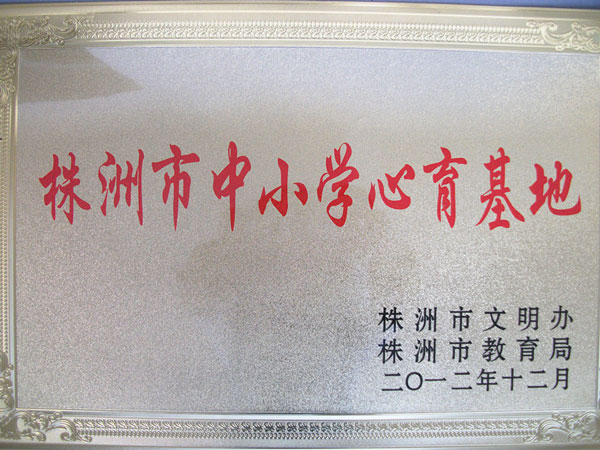 株洲市中小学心育基地
株洲市文明办
株洲市教育局
二〇一二年十二月